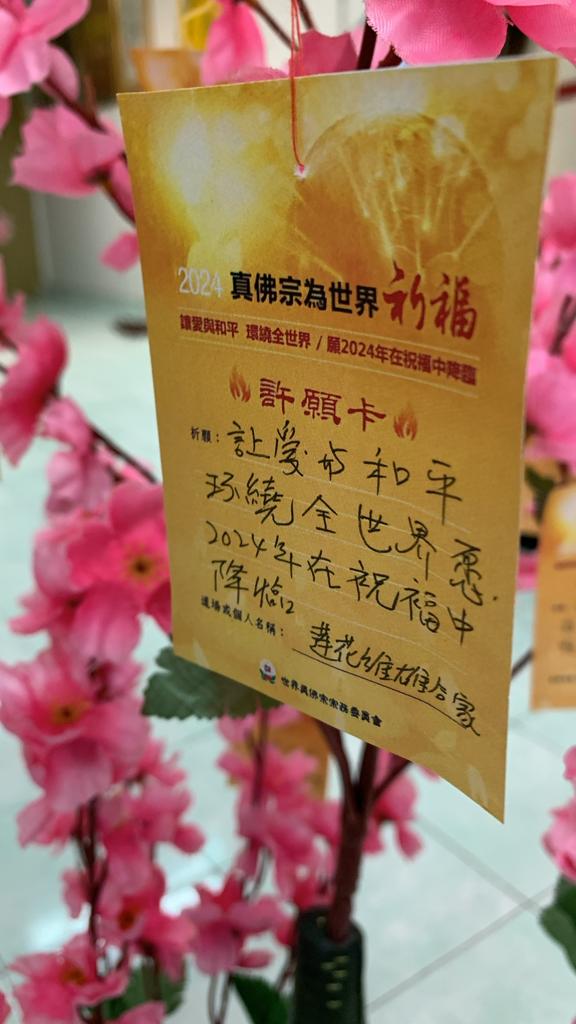 2024 真佛宗為世界祈福
讓愛與和平 環繞全世界 / 願2024年在祝福中降臨
許願卡
祈願：让爱与和平
环繞全世界愿
2024年在祝福中
降临
道場或個人名稱：莲花维雄合家
世界真佛宗宗務委員會